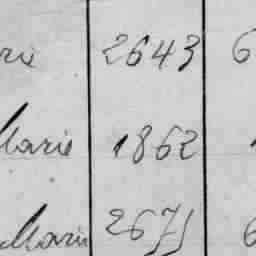 rie 2643 6
Marie 1862
Marie 2675 6